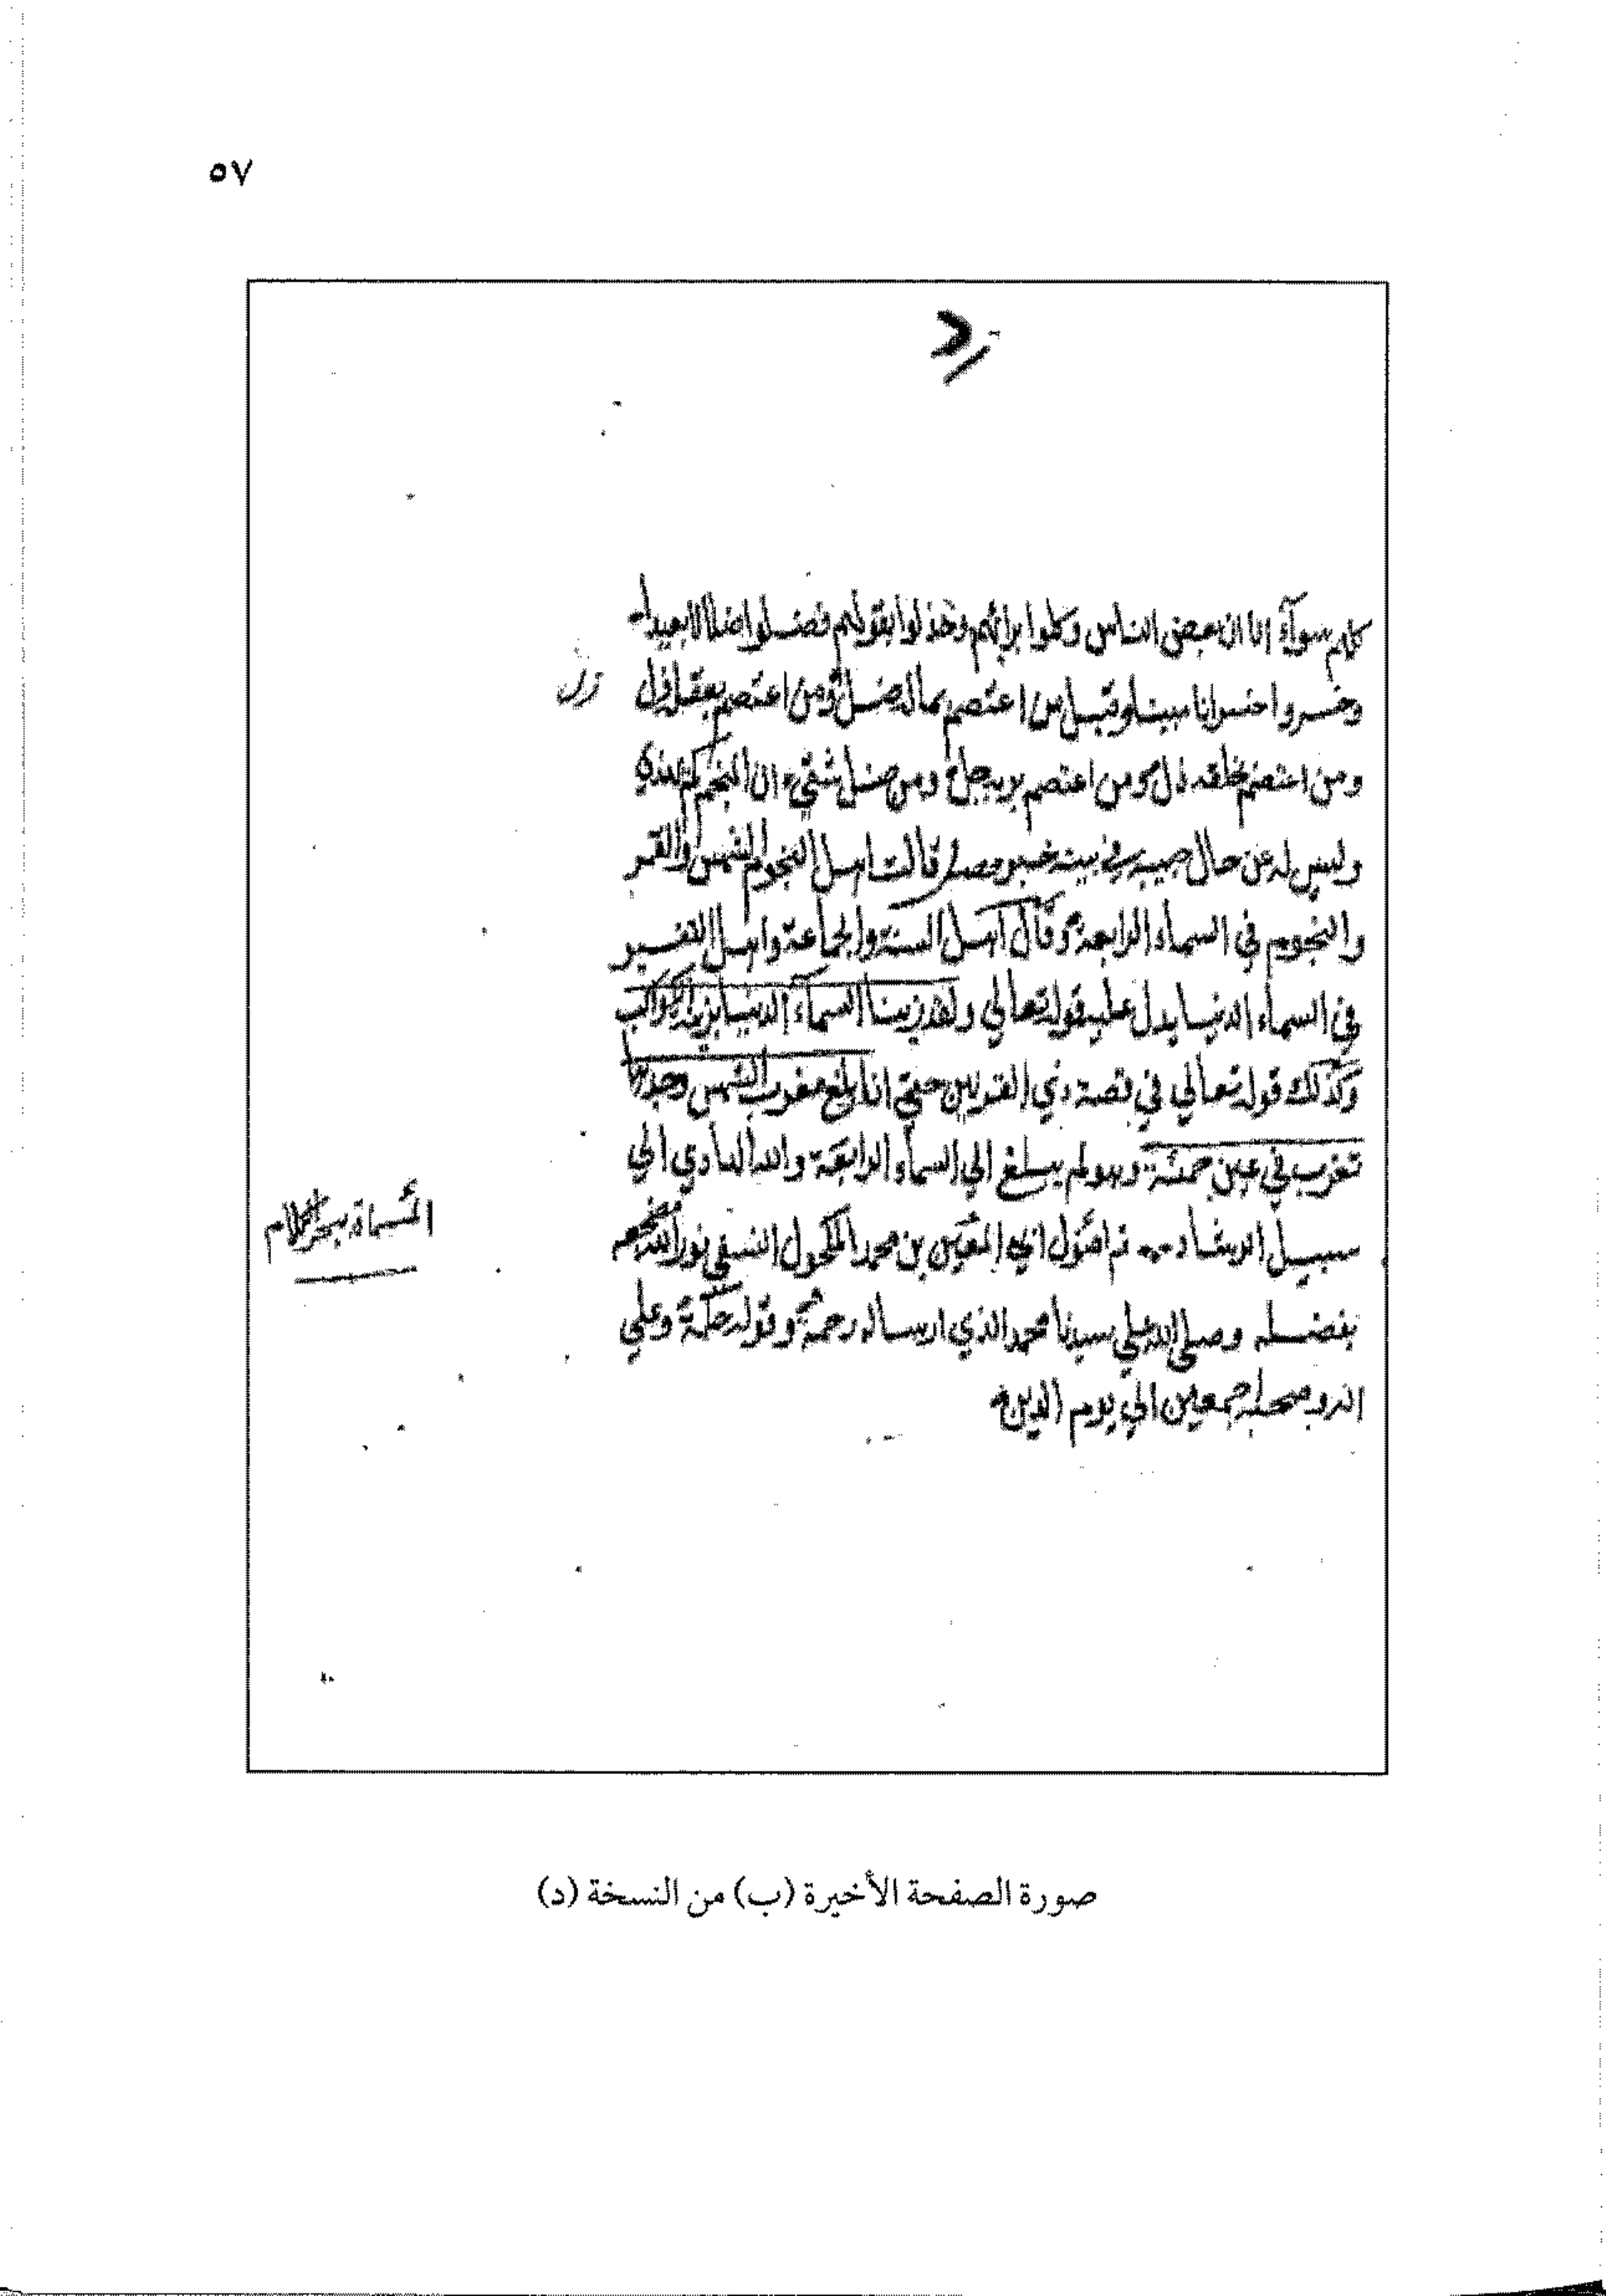 ٥٧
د
كلهم سوآء الا ان بعض الناس وكلوا برائهم وخذلوا بقولهم فضلوا ضلالا بعيدا
وخسروا خسرانا مبينا وقيل من اعتصم بماله ضل ومن اعتصم بعقله زل
زل
ومن اعتصم بخلقه ذل ومن اعتصم بربه جل ومن ضل شقي ان المنجم
وليس له عن حال في بيته خبر قالت اهل النجوم الشمس والقمر
والنجوم في السماء الرابعة وقال اهل السنة والجماعة واهل التفسير
في السماء الدنيا يدل عليه قوله تعالي ولقد زينا السمآء الدنيا بزينة الكواكب
وكذلك قوله تعالي في قصة ذي القرنين حتي اذا بلغ مغرب الشمس وجدها
تغرب في عين حمئة وهو لم يبلغ الي السماء الرابعة والله الهادي الي
سبيل الرشاد تم اصول ابي المعين بن محمد المكحول النسفي نور الله مضجعه
المسماة ببحر الكلام
بفضله وصلي الله علي سيدنا محمد الذي ارساله رحمة وقوله حكمة وعلي
اله وصحبه اجمعين الي يوم الدين
صورة الصفحة الأخيرة (ب) من النسخة (د)